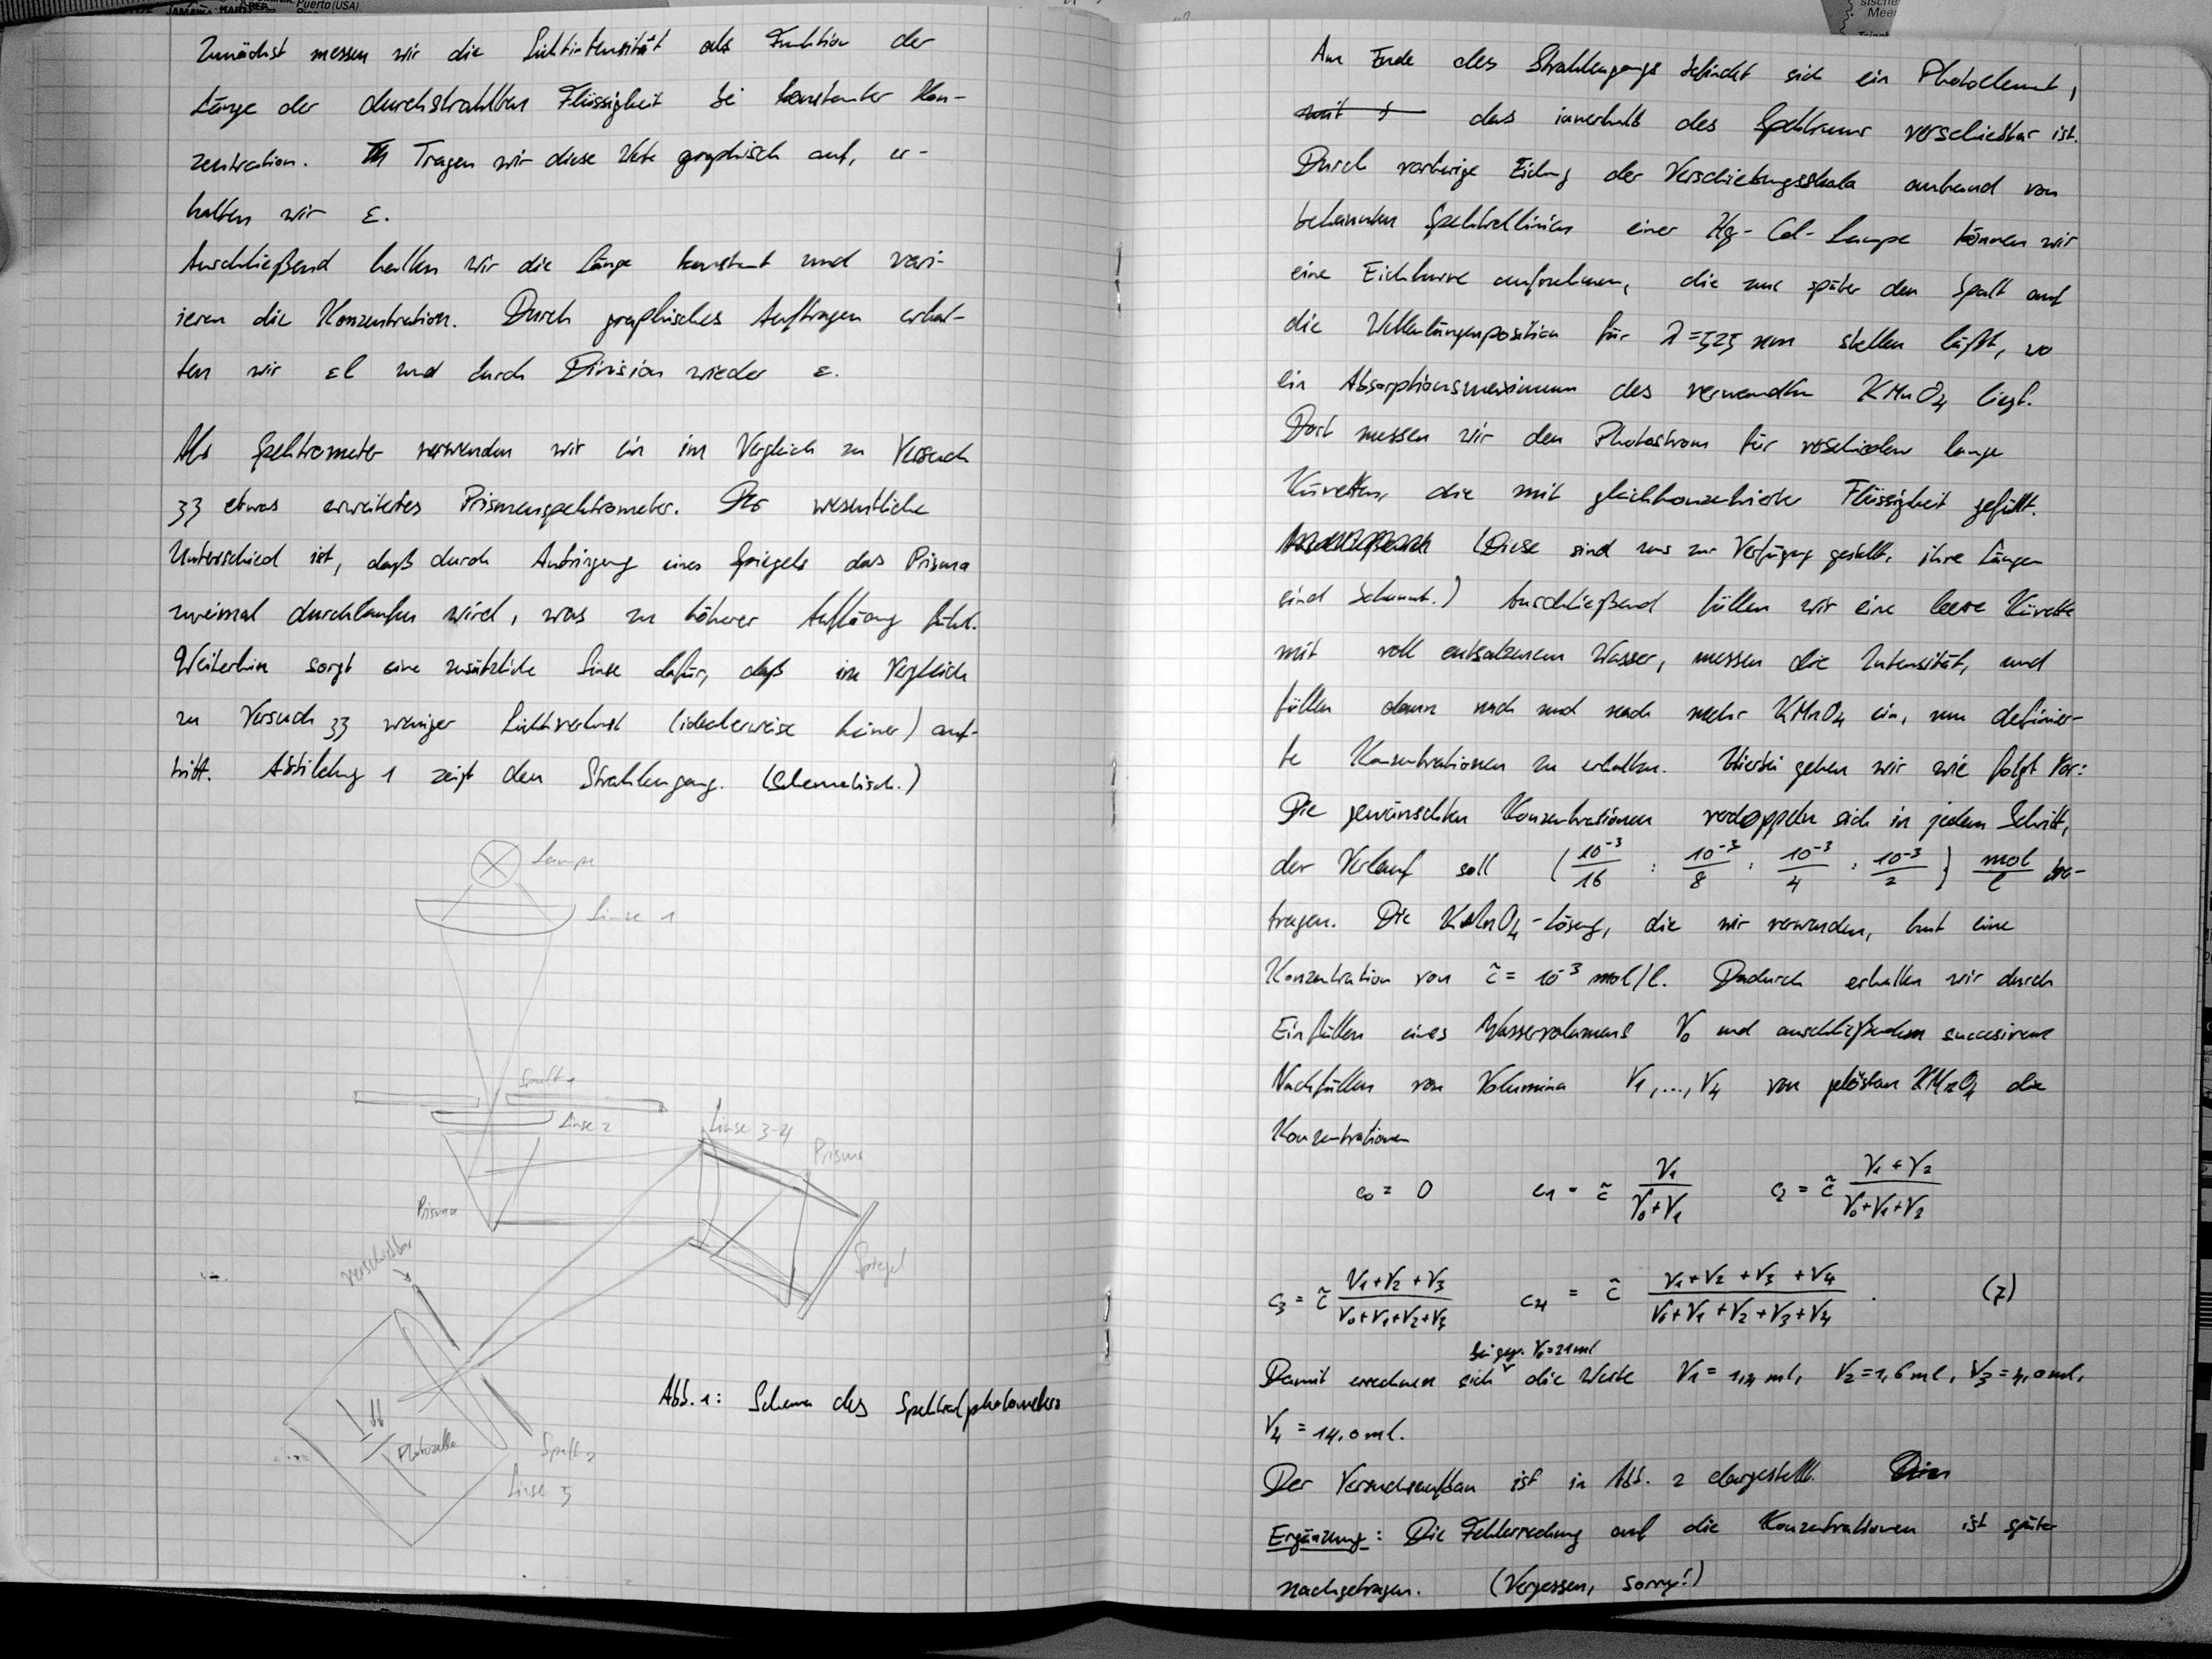 JAMAIKA
HAITI
REP.
Puerto (USA)
Zunächst messen wir die Lichtintensität als Funktion der
Länge der durchstrahlten Flüssigkeit bei konstanter Kon-
zentration. Tragen wir diese Werte graphisch auf, er-
halten wir ε.
Anschließend halten wir die Länge konstant und vari-
ieren die Konzentration. Durch graphisches Auftragen erhal-
ten wir εl und durch Division wieder ε.
Als Spektrometer verwenden wir ein im Vergleich zu Versuch
33 etwas erweitertes Prismenspektrometer. Der wesentliche
Unterschied ist, daß durch Anbringung eines Spiegels das Prisma
zweimal durchlaufen wird, was zu höherer Auflösung führt.
Weiterhin sorgt eine zusätzliche Linse dafür, daß im Vergleich
zu Versuch 33 weniger Lichtverlust (idealerweise keiner) auf-
tritt. Abbildung 1 zeigt den Strahlengang. (Schematisch.)
Lampe
Linse 1
Spalt 1
Linse 2
Linse 3-4
Prisma
Prisma
Spiegel
verschiebbar
Photozelle
Spalt 2
Linse 5
Abb. 1: Schema des Spektralphotometers
sische
Meer
Am Ende des Strahlengangs befindet sich ein Photoelement,
das innerhalb des Spektrums verschiebbar ist.
Durch vorherige Eichung der Verschiebungsskala anhand von
bekannten Spektrallinien einer Hg-Cd-Lampe können wir
eine Eichkurve aufnehmen, die uns später den Spalt auf
die Wellenlängenposition für λ=525 nm stellen läßt, wo
ein Absorptionsmaximum des verwendten KMnO₄ liegt.
Dort messen wir den Photostrom für verschieden lange
Küvetten, die mit gleichkonzentrierter Flüssigkeit gefüllt.
(Diese sind uns zur Verfügung gestellt, ihre Längen
sind bekannt.) Anschließend füllen wir eine leere Küvette
mit voll entsalzenem Wasser, messen die Intensität, und
füllen dann nach und nach mehr KMnO₄ ein, um definier-
te Konzentrationen zu erhalten. Hierbei gehen wir wie folgt vor:
Die gewünschten Konzentrationen verdoppeln sich in jedem Schritt,
der Verlauf soll (10⁻³/16 : 10⁻³/8 : 10⁻³/4 : 10⁻³/2) mol/l be-
tragen. Die KMnO₄-Lösung, die wir verwenden, hat eine
Konzentration von c̃ = 10⁻³ mol/l. Dadurch erhalten wir durch
Einfüllen eines Wasservolumens V₀ und anschließendem succesivem
Nachfüllen von Volumina V₁,...,V₄ von gelöstem KMnO₄ die
Konzentrationen
c₀ = 0 c₁ = c̃ V₁/(V₀+V₁) c₂ = c̃ (V₁+V₂)/(V₀+V₁+V₂)
c₃ = c̃ (V₁+V₂+V₃)/(V₀+V₁+V₂+V₃) c₄ = c̃ (V₁+V₂+V₃+V₄)/(V₀+V₁+V₂+V₃+V₄) . (7)
bei geg. V₀=21ml
Damit errechnen sich die Werte V₁ = 1,4 ml, V₂=1,6 ml, V₃=4,0 ml,
V₄ = 14,0 ml.
Der Versuchsaufbau ist in Abb. 2 dargestellt.
Ergänzung: Die Fehlerrechnung auf die Konzentrationen ist später
nachgetragen. (Vergessen, sorry!)